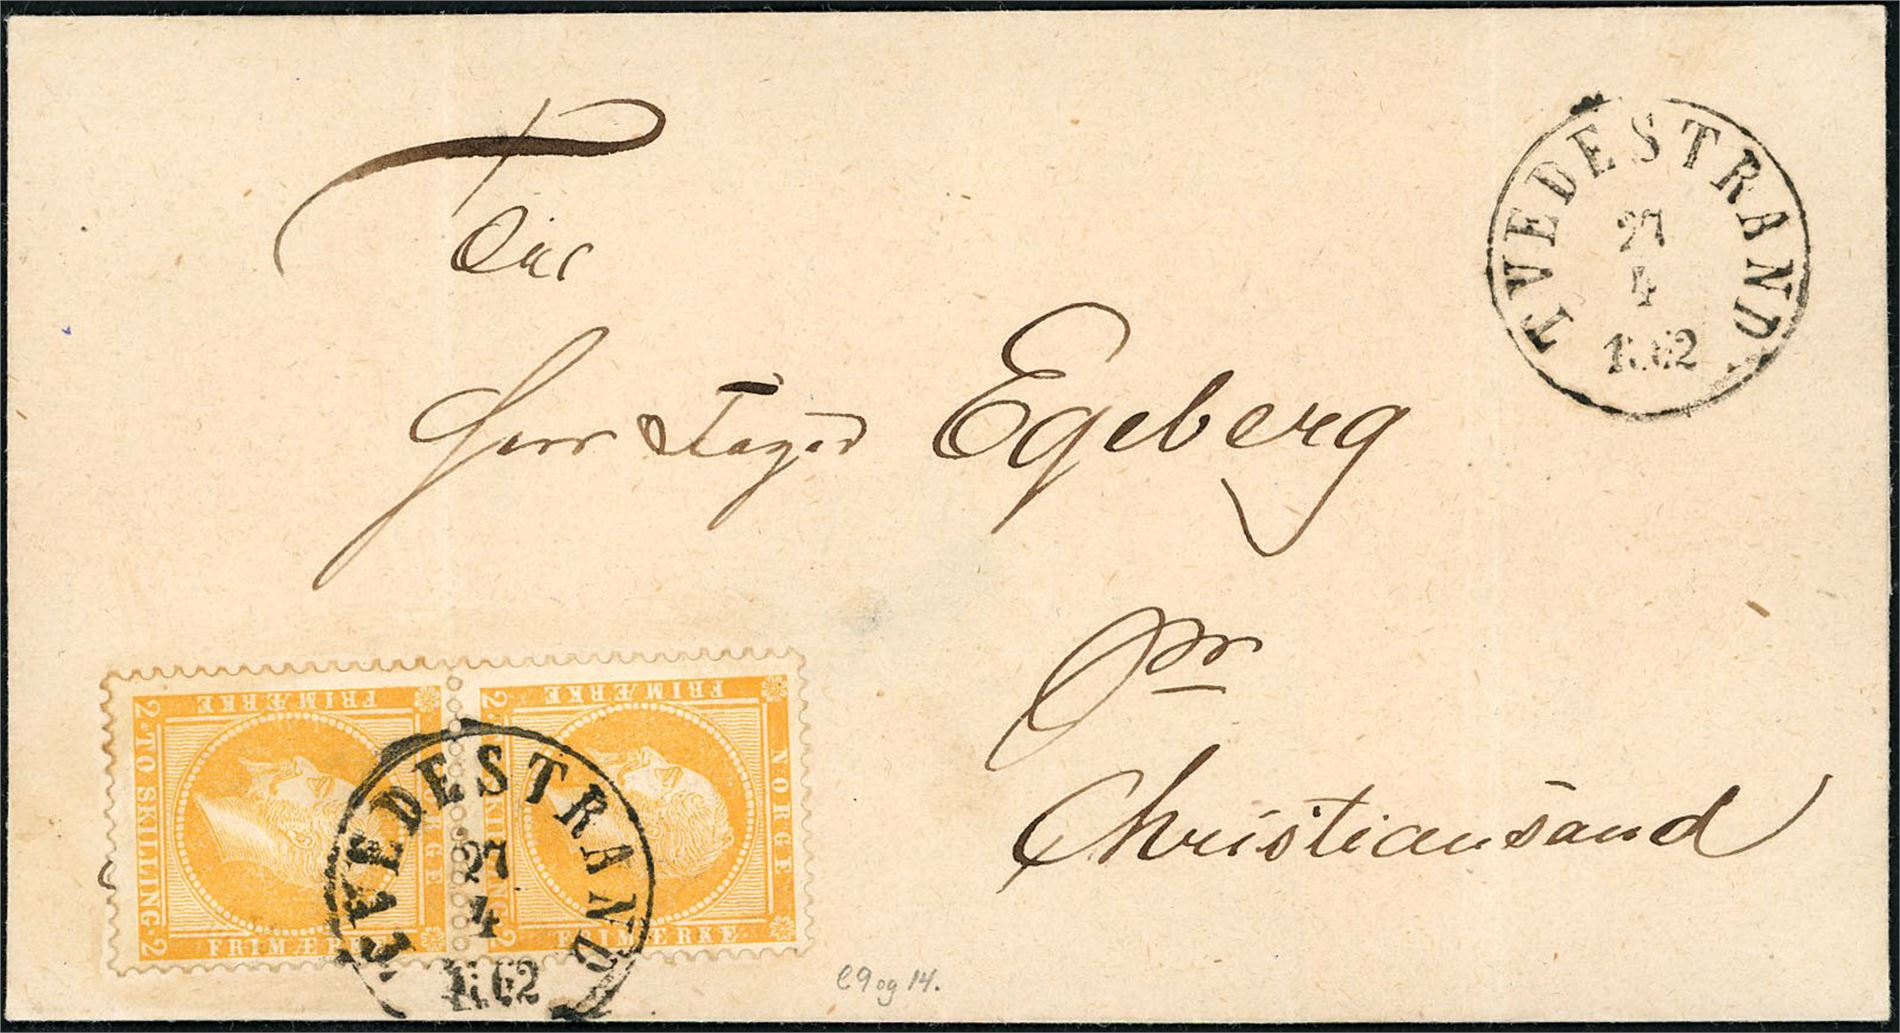 TVEDESTRAND
27
4
1862
Herr Egeberg
pr
Christiansand
FRIMÆRKE FRIMÆRKE
2·TO SKILLING·2 NORGE
FRIMÆRKE FRIMÆRKE
TVEDESTRAND
27
4
1862
C9 og 14.